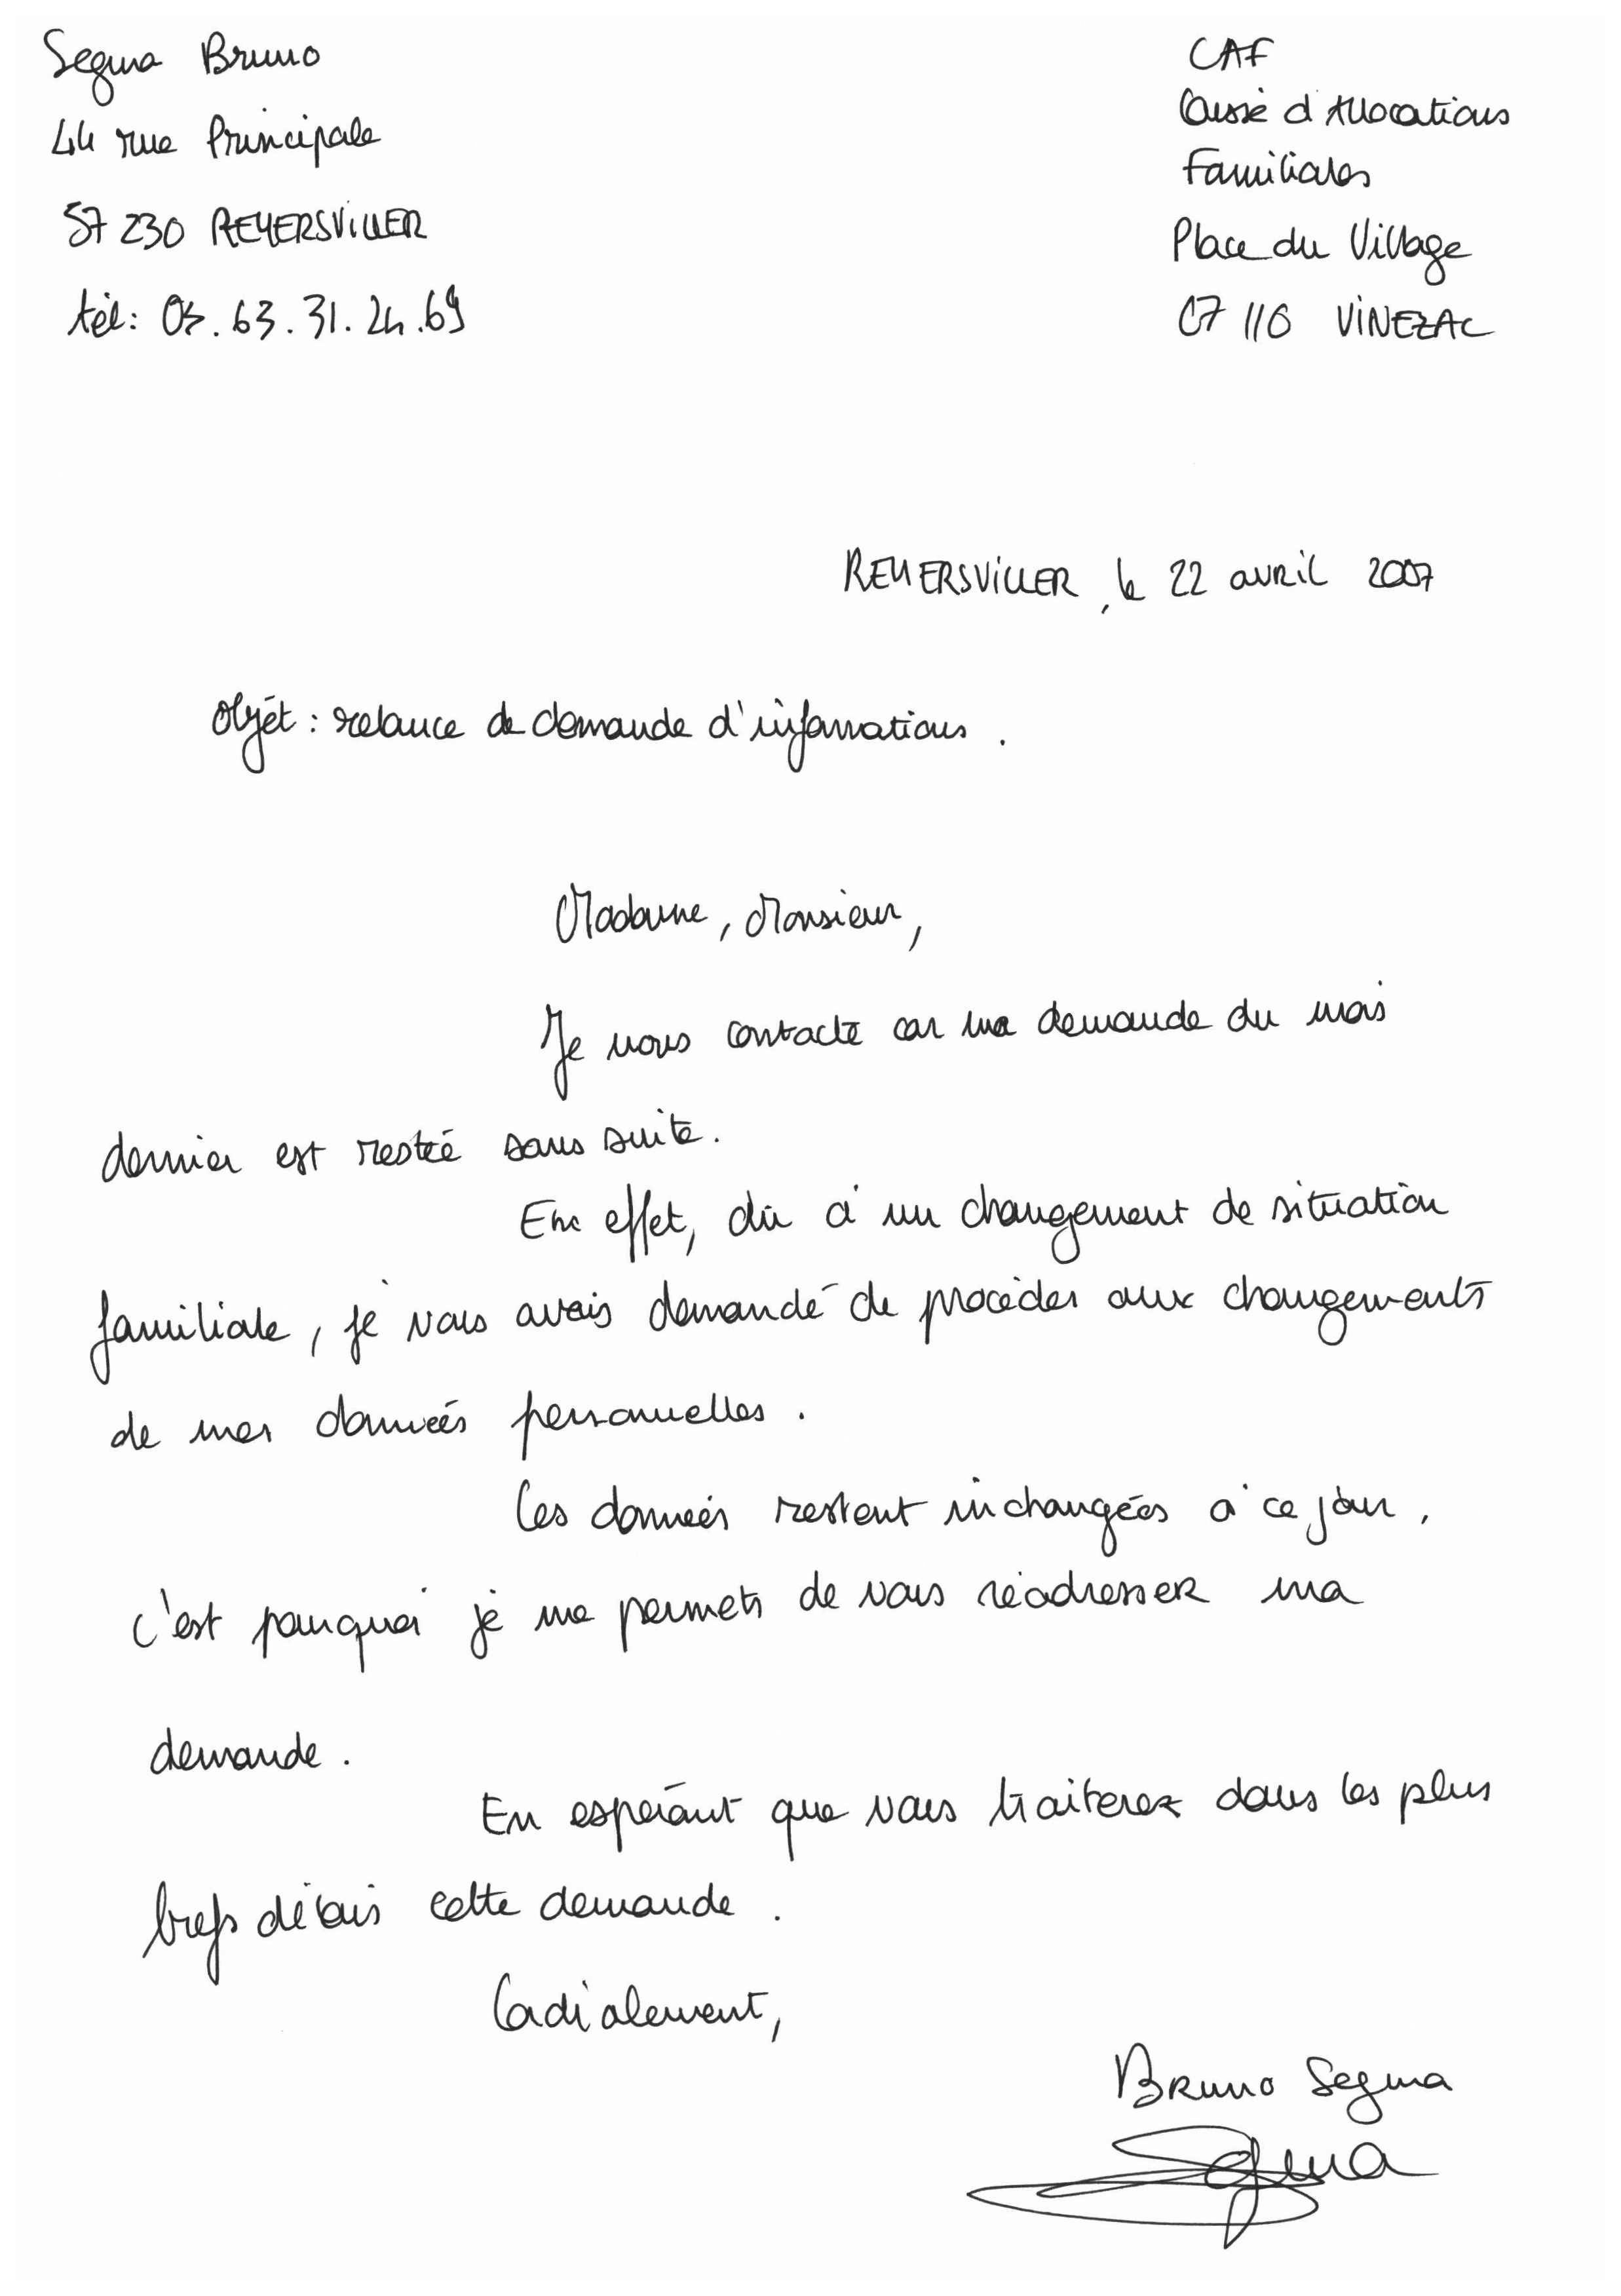 Segma Bruno
44 rue Principale
57 230 REYERSVILLER
tél: 05.63.31.24.69
CAF
Caisse d'Allocations
Familiales
Place du Village
07 110 VINEZAC
REYERSVILLER, le 22 avril 2007
Objet : relance de demande d'informations.
Madame, Monsieur,
Je vous contacte car ma demande du mois
dernier est restée sans suite.
En effet, dû à un changement de situation
familiale, je vous avais demandé de procéder aux changements
de mes données personnelles.
Ces données restent inchangées à ce jour,
c'est pourquoi je me permets de vous réadresser ma
demande.
En espérant que vous traiterez dans les plus
brefs délais cette demande.
Cordialement,
Bruno Segma
Segma